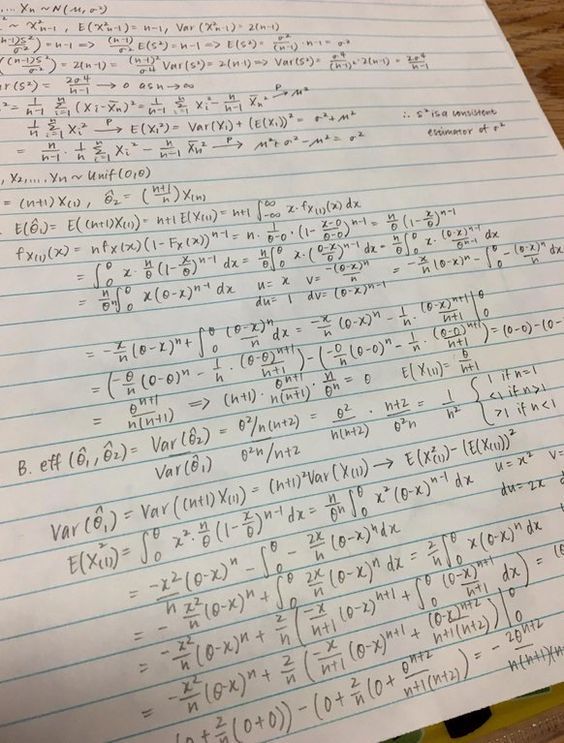 .... Xn ~ N(μ, σ²)
~ χ²n-1, E(χ²n-1) = n-1, Var(χ²n-1) = 2(n-1)
(n-1)S²/σ²) = n-1 => (n-1)/σ² E(S²) = n-1 => E(S²) = σ²/(n-1) · n-1 = σ²
((n-1)S²/σ²) = 2(n-1) = (n-1)²/σ⁴ Var(S²) = 2(n-1) => Var(S²) = σ⁴/(n-1)² · 2(n-1) = 2σ⁴/n-1
r(S²) = 2σ⁴/n-1 → 0 as n→∞
² = 1/n-1 Σⁿi=1 (Xi - X̄n)² = 1/n-1 Σⁿi=1 Xi² - n/n-1 X̄n² →P μ²
1/n Σⁿi=1 Xi² →P E(Xi²) = Var(Xi) + (E(Xi))² = σ² + μ²
∴ S² is a consistent
estimator of σ²
= n/n-1 · 1/n Σⁿi=1 Xi² - n/n-1 X̄n² →P μ² + σ² - μ² = σ²
, X2, .... Xn ~ Unif(0, θ)
= (n+1) X(1), θ̂2 = (n+1/n) X(n)
E(θ̂1) = E((n+1)X(1)) = n+1 E(X(1)) = n+1 ∫∞-∞ x · fX(1)(x) dx
fX(1)(x) = n fX(x)(1 - FX(x))ⁿ⁻¹ = n · 1/θ-0 · (1 - x-0/θ-0)ⁿ⁻¹ = n/θ (1 - x/θ)ⁿ⁻¹
= ∫θ0 x · n/θ (1 - x/θ)ⁿ⁻¹ dx = n/θ ∫θ0 x · (θ-x/θ)ⁿ⁻¹ dx = n/θ ∫θ0 x · (θ-x)ⁿ⁻¹/θⁿ⁻¹ dx
= n/θⁿ ∫θ0 x(θ-x)ⁿ⁻¹ dx u = x v = -(θ-x)ⁿ/n = -x/n (θ-x)ⁿ - ∫θ0 -(θ-x)ⁿ/n dx
du = 1 dv = (θ-x)ⁿ⁻¹
= -x/n (θ-x)ⁿ + ∫θ0 (θ-x)ⁿ/n dx = -x/n (θ-x)ⁿ - 1/n · (θ-x)ⁿ⁺¹/n+1 |θ0
= (-θ/n (θ-θ)ⁿ - 1/n · (θ-θ)ⁿ⁺¹/n+1) - (-0/n (θ-0)ⁿ - 1/n · (θ-0)ⁿ⁺¹/n+1) = (0-0) - (0-
= θⁿ⁺¹/n(n+1) => (n+1) · θⁿ⁺¹/n(n+1) · n/θⁿ = θ E(X(1)) = θ/n+1
B. eff(θ̂1, θ̂2) = Var(θ̂2)/Var(θ̂1) = θ²/n(n+2)/θ²n/n+2 = θ²/n(n+2) · n+2/θ²n = 1/n² { 1 if n=1
<1 if n>1
>1 if n<1
Var(θ̂1) = Var((n+1)X(1)) = (n+1)² Var(X(1)) → E(X²(1)) - (E(X(1)))²
E(X²(1)) = ∫θ0 x² · n/θ (1 - x/θ)ⁿ⁻¹ dx = n/θⁿ ∫θ0 x² (θ-x)ⁿ⁻¹ dx u = x² v =
du = 2x d
= -x²/n (θ-x)ⁿ - ∫θ0 - 2x/n (θ-x)ⁿ dx
= - x²/n (θ-x)ⁿ + ∫θ0 2x/n (θ-x)ⁿ dx = 2/n ∫θ0 x(θ-x)ⁿ dx
= -x²/n (θ-x)ⁿ + 2/n (-x/n+1 (θ-x)ⁿ⁺¹ + ∫θ0 (θ-x)ⁿ⁺¹/n+1 dx) = (0
= -x²/n (θ-x)ⁿ + 2/n (-x/n+1 (θ-x)ⁿ⁺¹ + (θ-x)ⁿ⁺²/n+1(n+2)) |θ0
(0 + 2/n (0+0)) - (0 + 2/n (0 + θⁿ⁺²/n+1(n+2)) = - 2θⁿ⁺²/n(n+1)(n